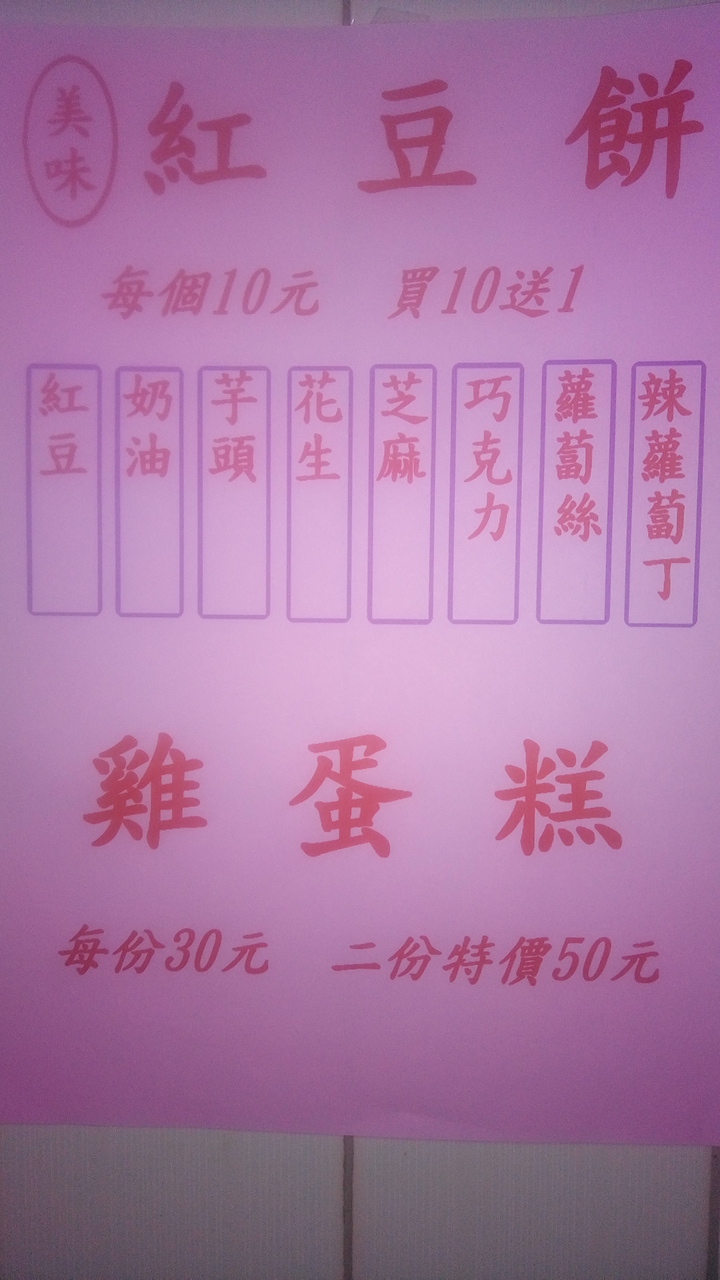 美味
紅豆餅
每個10元 買10送1
紅豆
奶油
芋頭
花生
芝麻
巧克力
蘿蔔絲
辣蘿蔔丁
雞蛋糕
每份30元 二份特價50元